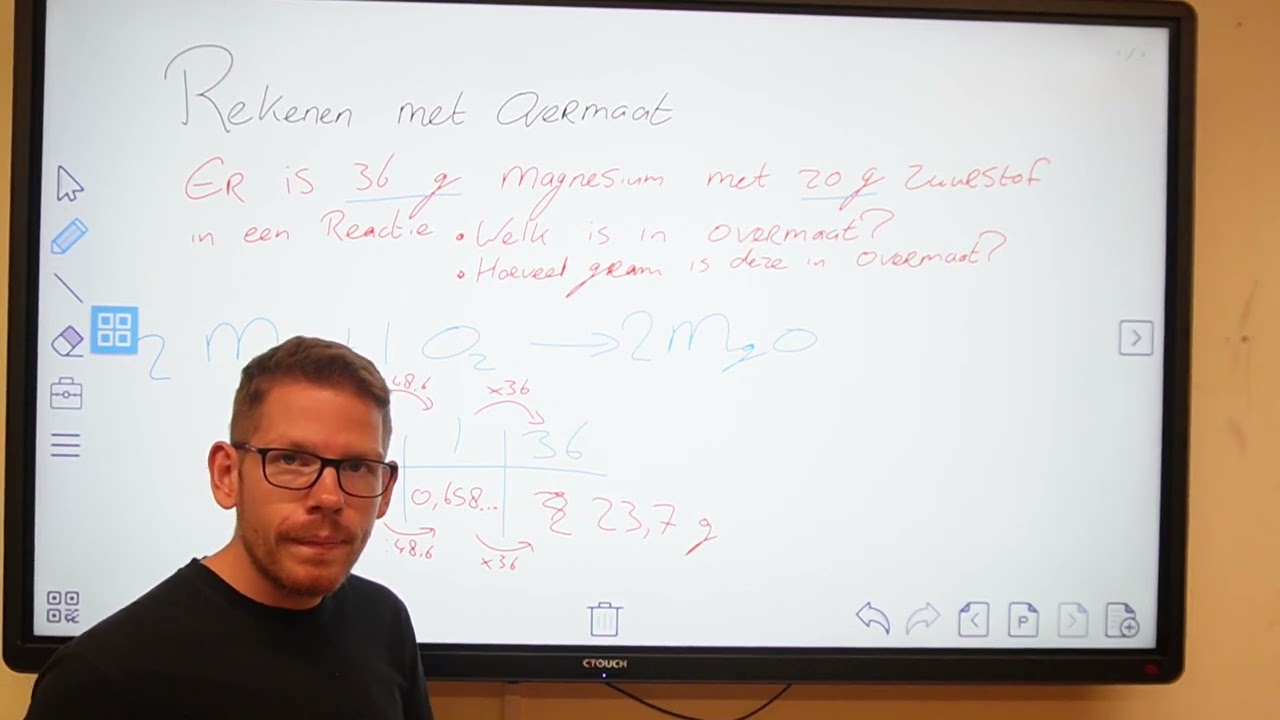 Rekenen met Overmaat
Er is 36 g magnesium met 20 g zuurstof
in een Reactie • Welk is in overmaat?
• Hoeveel gram is deze in overmaat?
2 M + 1 O₂ → 2 MgO
48,6 x36
1 36
0,658... 23,7 g
:48,6 x36
P
CTOUCH